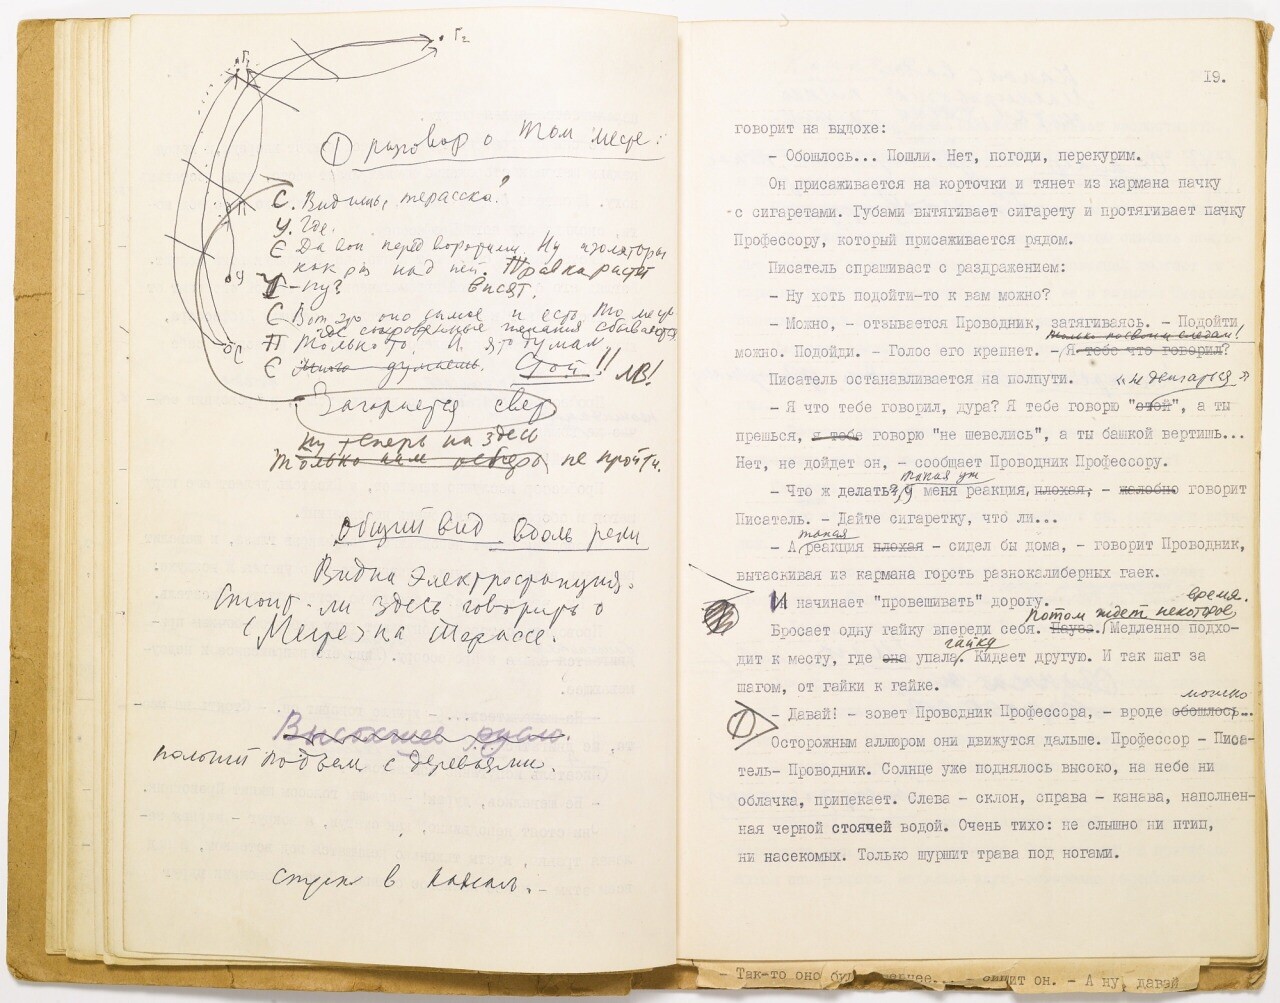 Г₂
Г₁
① разговор о том месте:
С. Видишь, терасска?
У. Где.
С Да вон перед воротами. Ну изоляторы
как раз над ней.
висят.
- Ну?
С Вот это оно самое и есть то место
где сокровенные желания сбываются
П Только то? И это туман
С думаешь. Стой!! NB!
Загорается свет
Ну теперь на здесь
Только нам не пройти.
Общий вид вдоль реки
Видна электростанция.
Стоит-ли здесь говорить о
"Месте" на терассе.
Высохшее русло.
пологий подъем с деревьями.
спуск в
19.
говорит на выдохе:
- Обошлось... Пошли. Нет, погоди, перекурим.
Он присаживается на корточки и тянет из кармана пачку
с сигаретами. Губами вытягивает сигарету и протягивает пачку
Профессору, который присаживается рядом.
Писатель спрашивает с раздражением:
- Ну хоть подойти-то к вам можно?
- Можно, - отзывается Проводник, затягиваясь. - Подойти
только по своим следам!
можно. Подойди. - Голос его крепнет. - Я тебе что говорил?
Писатель останавливается на полпути. "не двигаться"
- Я что тебе говорил, дура? Я тебе говорю "стой", а ты
прешься, я тебе говорю "не шевелись", а ты башкой вертишь...
Нет, не дойдет он, - сообщает Проводник Профессору.
такая уж
- Что ж делать?, у меня реакция, плохая, - жалобно говорит
Писатель. - Дайте сигаретку, что ли...
такая
- А реакция плохая - сидел бы дома, - говорит Проводник,
вытаскивая из кармана горсть разнокалиберных гаек.
И начинает "провешивать" дорогу.
время.
Потом ждет некоторое
Бросает одну гайку впереди себя. Пауза. Медленно подхо-
гайка
дит к месту, где она упала. Кидает другую. И так шаг за
шагом, от гайки к гайке.
можно
① - Давай! - зовет Проводник Профессора, - вроде обошлось...
Осторожным аллюром они движутся дальше. Профессор - Писа-
тель- Проводник. Солнце уже поднялось высоко, на небе ни
облачка, припекает. Слева - склон, справа - канава, наполнен-
ная черной стоячей водой. Очень тихо: не слышно ни птиц,
ни насекомых. Только шуршит трава под ногами.
- Так-то оно он. - А ну, давай